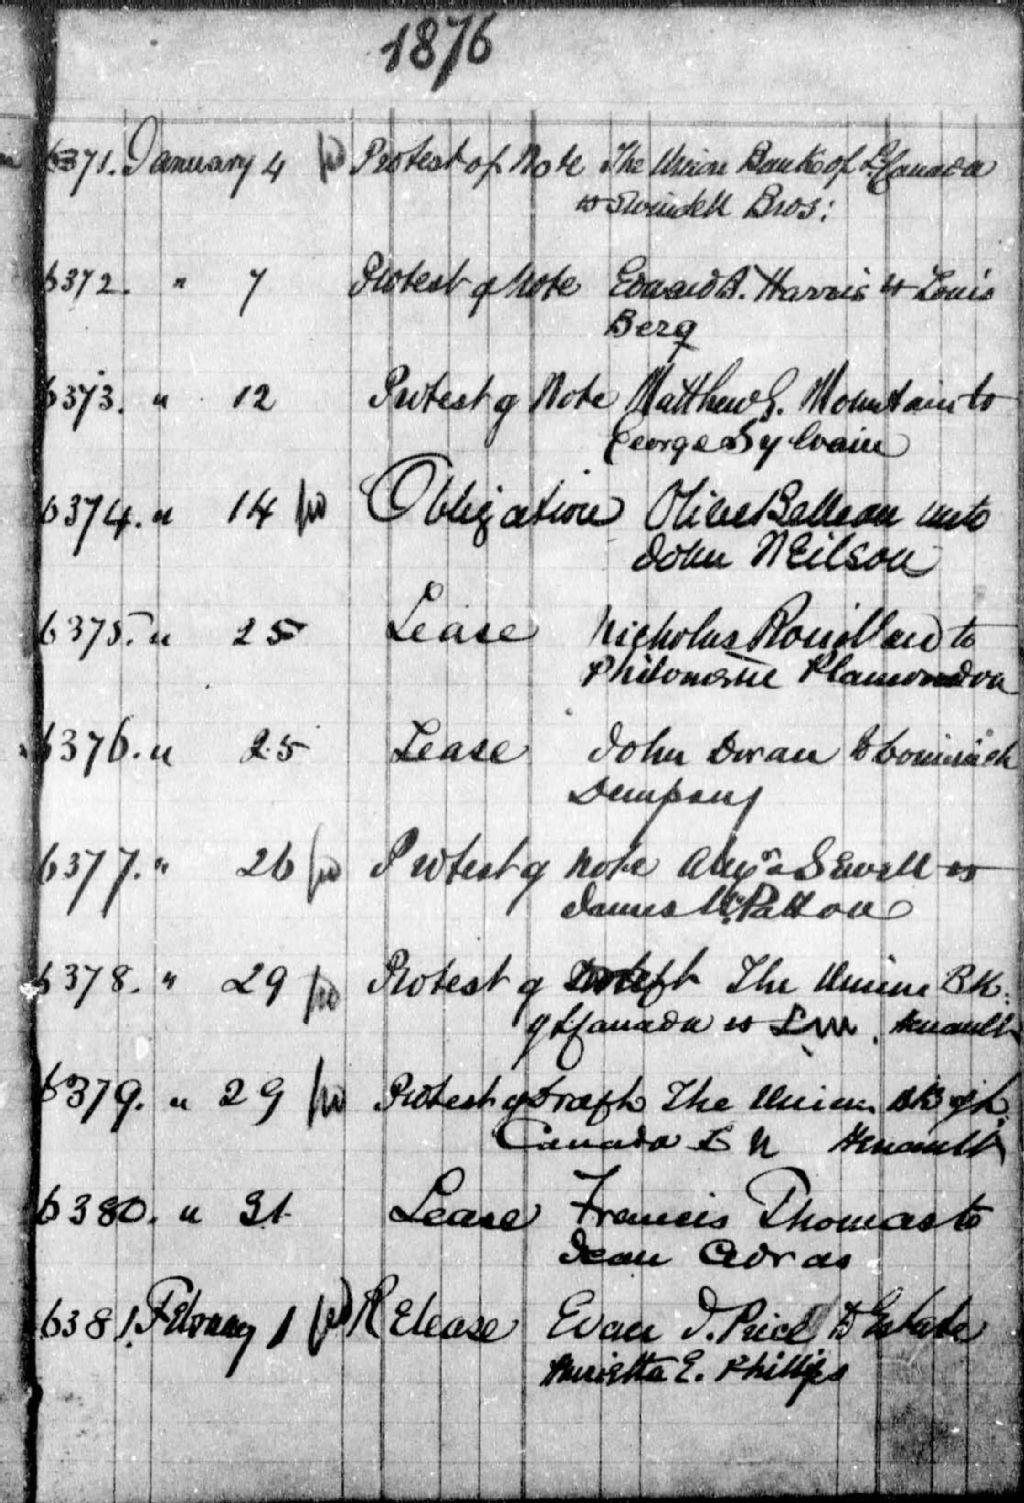 1876
6371. January 4 Protest of Note The Union Bank of L. Canada
vs Swindell Bros:
6372. " 7 Protest of Note Edward B. Harris vs Louis
Berg
6373. " 12 Protest of Note Matthew G. Mountain to
George Sylvain
6374. " 14 Obligation Olive Belleau unto
John Neilson
6375. " 25 Lease Nicholas Rouillard to
Philomene Plamondon
6376. " 25 Lease John Doran to Dominick
Dempsey
6377. " 26 Protest of Note Alexr Sewell vs
James McPatton
6378. " 29 Protest of Draft The Union BK.
of L Canada vs Henault
6379. " 29 Protest of Draft The Union BK of L.
Canada L N Henault
6380. " 31 Lease Francis Thomas to
Jean
6381. February 1 Release Evan J. Price to Estate
Henrietta E. Phillips